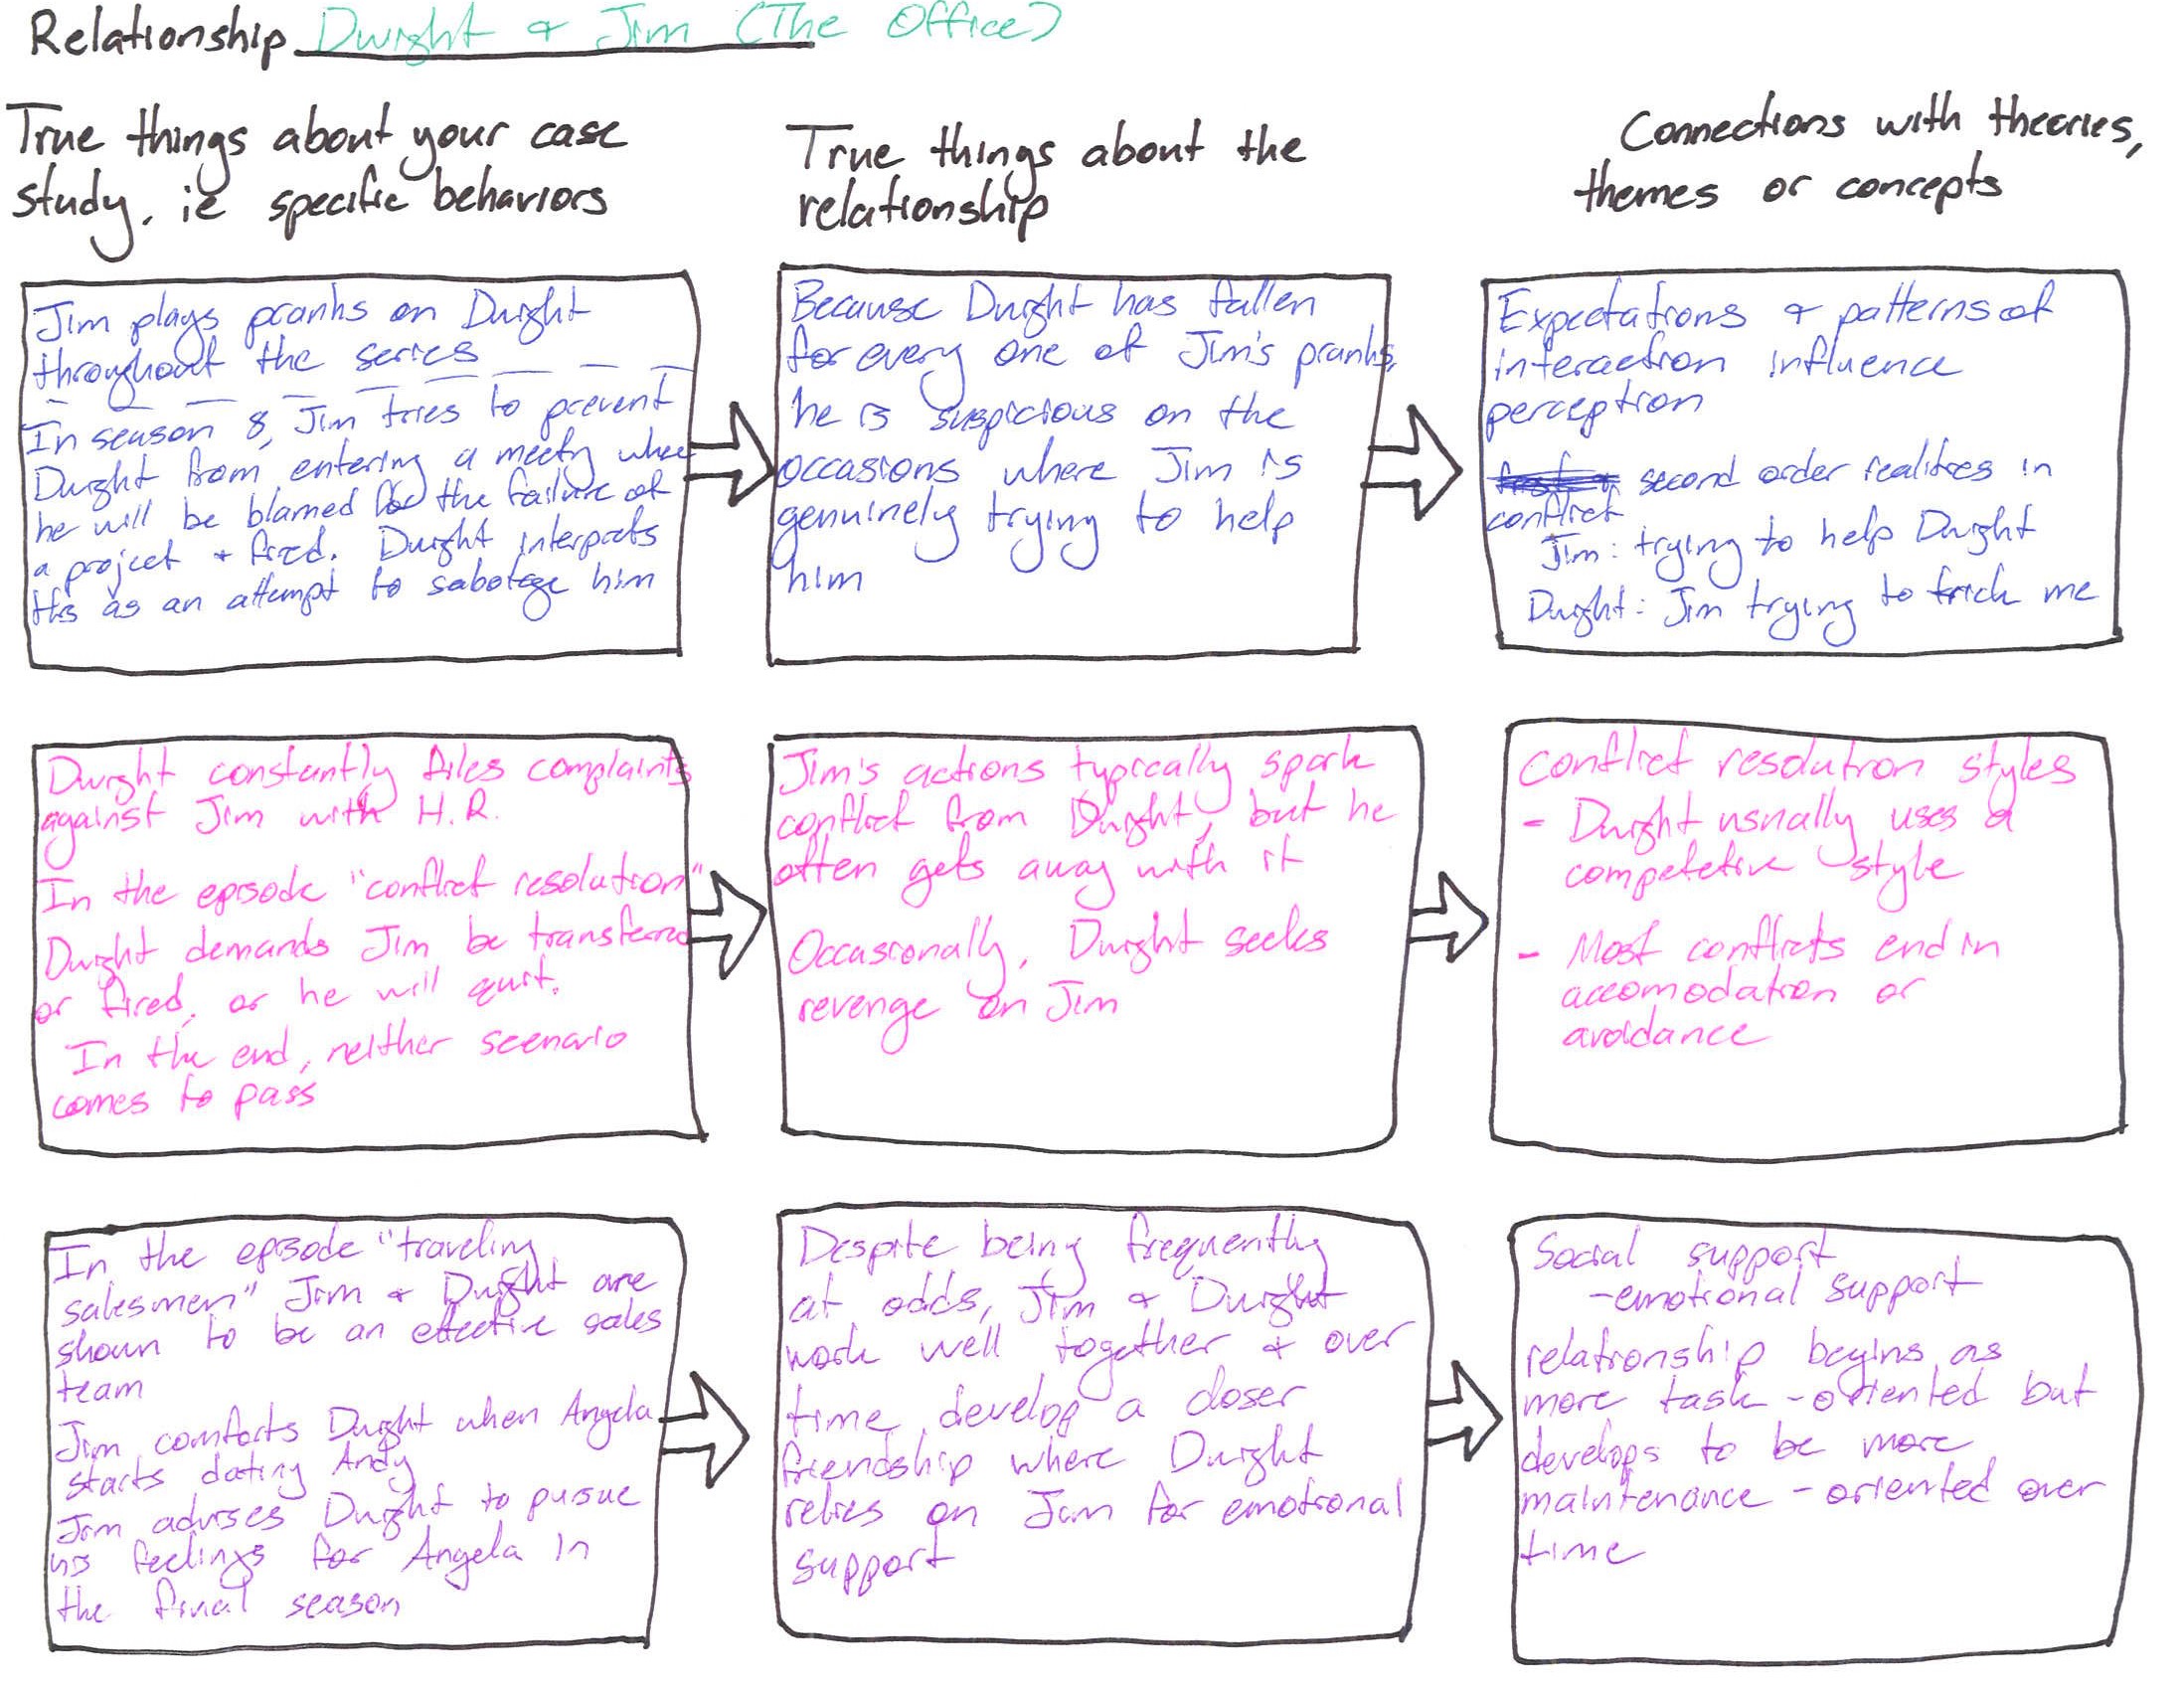 Relationship Dwight & Jim (The Office)
True things about your case
study, ie specific behaviors
True things about the
relationship
Connections with theories,
themes or concepts
Jim plays pranks on Dwight
throughout the series
In season 8, Jim tries to prevent
Dwight from entering a meeting where
he will be blamed for the failure of
a project & fired. Dwight interprets
this as an attempt to sabotage him
Because Dwight has fallen
for every one of Jim's pranks,
he is suspicious on the
occasions where Jim is
genuinely trying to help
him
Expectations & patterns of
interaction influence
perception
second order realities in
conflict
Jim: trying to help Dwight
Dwight: Jim trying to trick me
Dwight constantly files complaints
against Jim with H.R.
In the episode "conflict resolution"
Dwight demands Jim be transferred
or fired, or he will quit.
In the end, neither scenario
comes to pass
Jim's actions typically spark
conflict from Dwight, but he
often gets away with it
Occasionally, Dwight seeks
revenge on Jim
Conflict resolution styles
- Dwight usually uses a
competetive style
- Most conflicts end in
accomodation or
avoidance
In the episode "traveling
salesmen" Jim & Dwight are
shown to be an effective sales
team
Jim comforts Dwight when Angela
starts dating Andy
Jim advises Dwight to pursue
his feelings for Angela in
the final season
Despite being frequently
at odds, Jim & Dwight
work well together & over
time develop a closer
friendship where Dwight
relies on Jim for emotional
support
Social support
-emotional support
relationship begins as
more task-oriented but
develops to be more
maintenance-oriented over
time